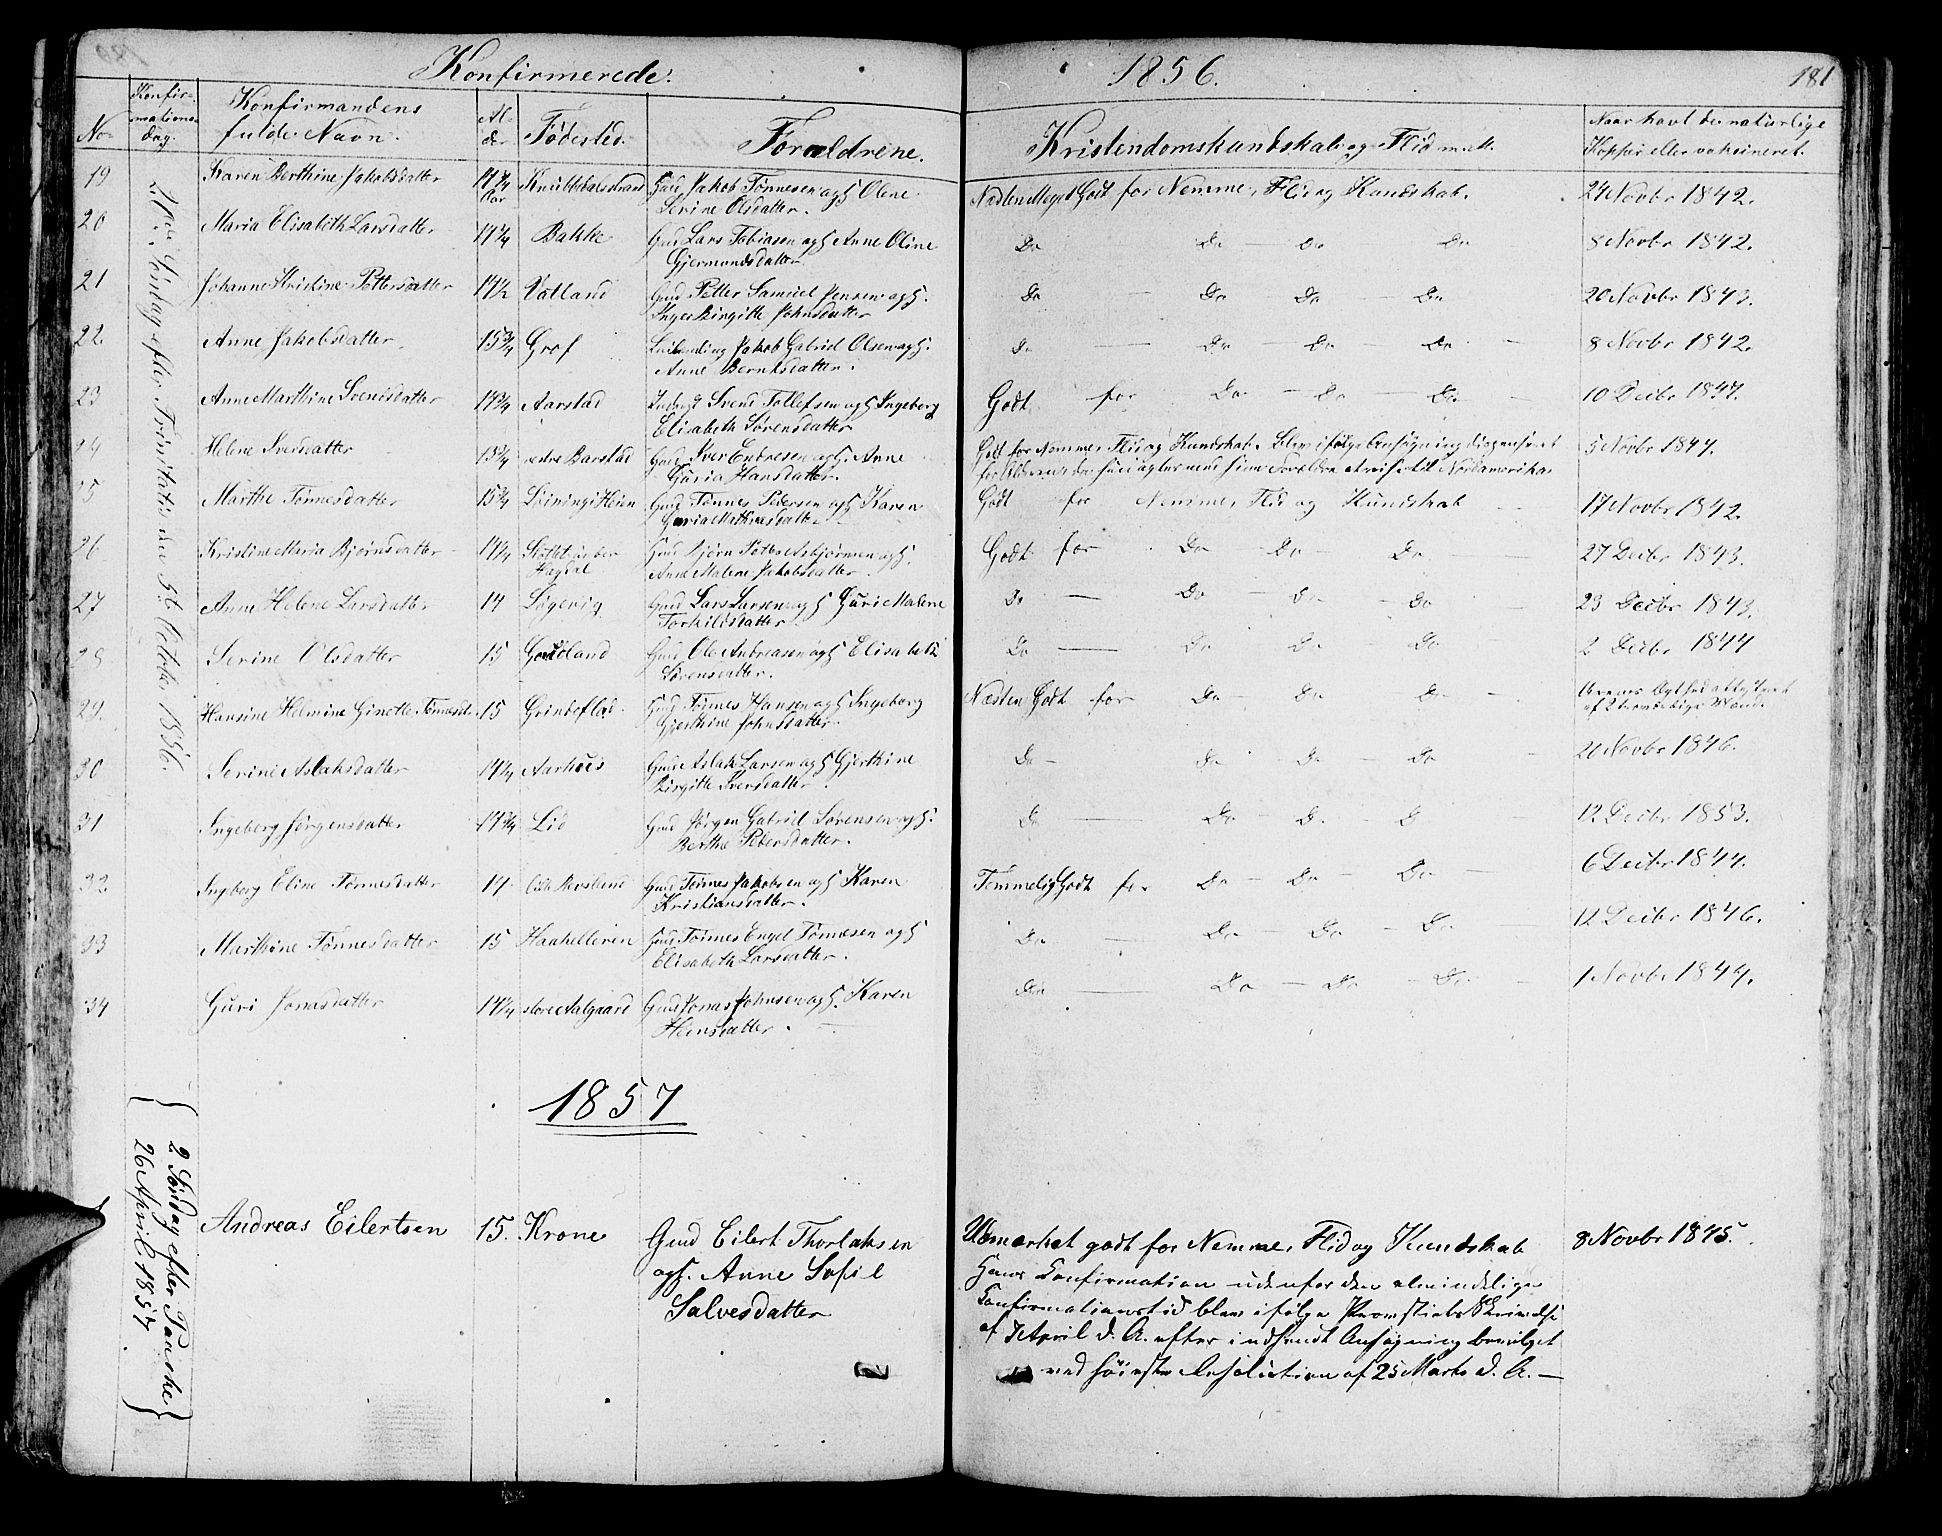 Konfirmerede. 1856. 181
No
Konfirmationsdag.
Konfirmandens fulde Navn.
Alder
Fødested.
Forældrene.
Kristendomskundskab og Flid m. m.
Naar havt de naturlige Kopper eller vaksineret.
20de Søndag efter Trinitatis den 5te October 1856.
19 Karen Berthine Jakobsdatter 14 3/4 Aar Knubbdalsstrand Gmd Jakob Tønnesen og H. Olene Serine Olsdatter. Næsten Meget Godt for Nemme, Flid og Kundskab. 24 Novbr 1842.
20 Maria Elisabeth Larsdatter 14 3/4 Bakke Gmd Lars Tobiasen og H Anne Oline Gjermundsdatter Do Do Do Do 8 Novbr 1842.
21 Johanne Kristine Pettersdatter 14 1/2 Vatland Gmd Petter Samuel Jensen og H. Inger Birgitte Johnsdatter Do Do Do Do 20 Novbr 1843.
22. Anne Jakobsdatter 15 3/4 Grof Jakob Gabriel Olsen og H. Anne Berntsdatter. Do Do Do Do 8 Novbr 1842.
23 Anne Marthine Svendsdatter 14 3/4 Aarstad Svend Tollefsen og H Ingeborg Elisabeth Sørensdatter Godt for Do Do Do 10 Decbr 1844.
24 Helene Iversdatter 13 3/4 vestre Barstad Gmd Iver Endresen og H. Anne Guria Hansdatter. Godt for Nemme, Flid og Kundskab. Blev ifølge Ansøgning dispenseret for Alderen, da hun agter med sine Forældre at reise til Nordamerika. 5 Novbr 1844.
25 Marthe Tønnesdatter 15 3/4 Løining i Heien Gmd Tønnes Pedersen og H Karen Guria Mathiasdatter Godt for Nemme, Flid og Kundskab 17 Novbr 1842.
26 Kristine Maria Bjørnsdatter 14 1/4 Hogdal Gmd Bjørn Peter Asbjørnsen og H. Anne Malene Jakobsdatter. Godt for Do Do Do 27 Decbr 1843.
27 Anne Helene Larsdatter 14 Løgevig Gmd Lars Larsen og H Guri Malene Torkildsdatter. Do Do Do Do 23 Decbr 1843.
28 Serine Olsdatter 15 Goudland Gmd Ole Andreasen og H Elisabeth Sørensdatter. Do Do Do Do 2 Decbr 1844
29. Hansine Helmine Ginette Tønnesd. 15 Grindeflad Gmd Tønnes Hansen og H Ingeborg Gjerthine Johnsdatter. Næsten Godt for Do Do Do
30 Serine Aslaksdatter 14 1/4 Aarhoes Gmd Aslak Larsen og H Gjerthine Birgitte Iversdatter. Do Do Do Do 21 Novbr 1846.
31 Ingeborg Jørgensdatter 14 3/4 Lid Gmd Jørgen Gabriel Sørensen og H. Berthe Pedersdatter. Do Do Do Do 12 Decbr 1853.
32 Ingborg Eline Tønnesdatter 14 Gmd Tønnes Jakobsen og H Karen Kristiansdatter. Temmelig Godt for Do Do Do 6 Decbr 1844.
33 Marthine Tønnesdatter 15 Haahelleren Gmd Tønnes Engel Tønnesen og H Elisabeth Larsdatter. Do Do Do Do 12 Decbr 1846.
34 Guri Jonasdatter 14 1/4 store Aalgaard Gmd Jonas Johnsen og H. Karen Heinsdatter. Do Do Do Do 1 Novbr 1844.
1857
2 Søndag efter Paaske
26 April 1857
1 Andreas Eilertsen 15. Krone Gmd Eilert Thorlaksen og H. Anne Sofie Salvesdatter
Udmærket godt for Nemme, Flid og Kundskab 8 Novbr 1845.
Hans Confirmation udenfor den almindelige
Confirmationstid blev ifølge Provstiets Skrivelse
af 7 April d. A. efter indsendt Ansøgning bevilget
ved høieste Resolution af 25 Marts d. A.